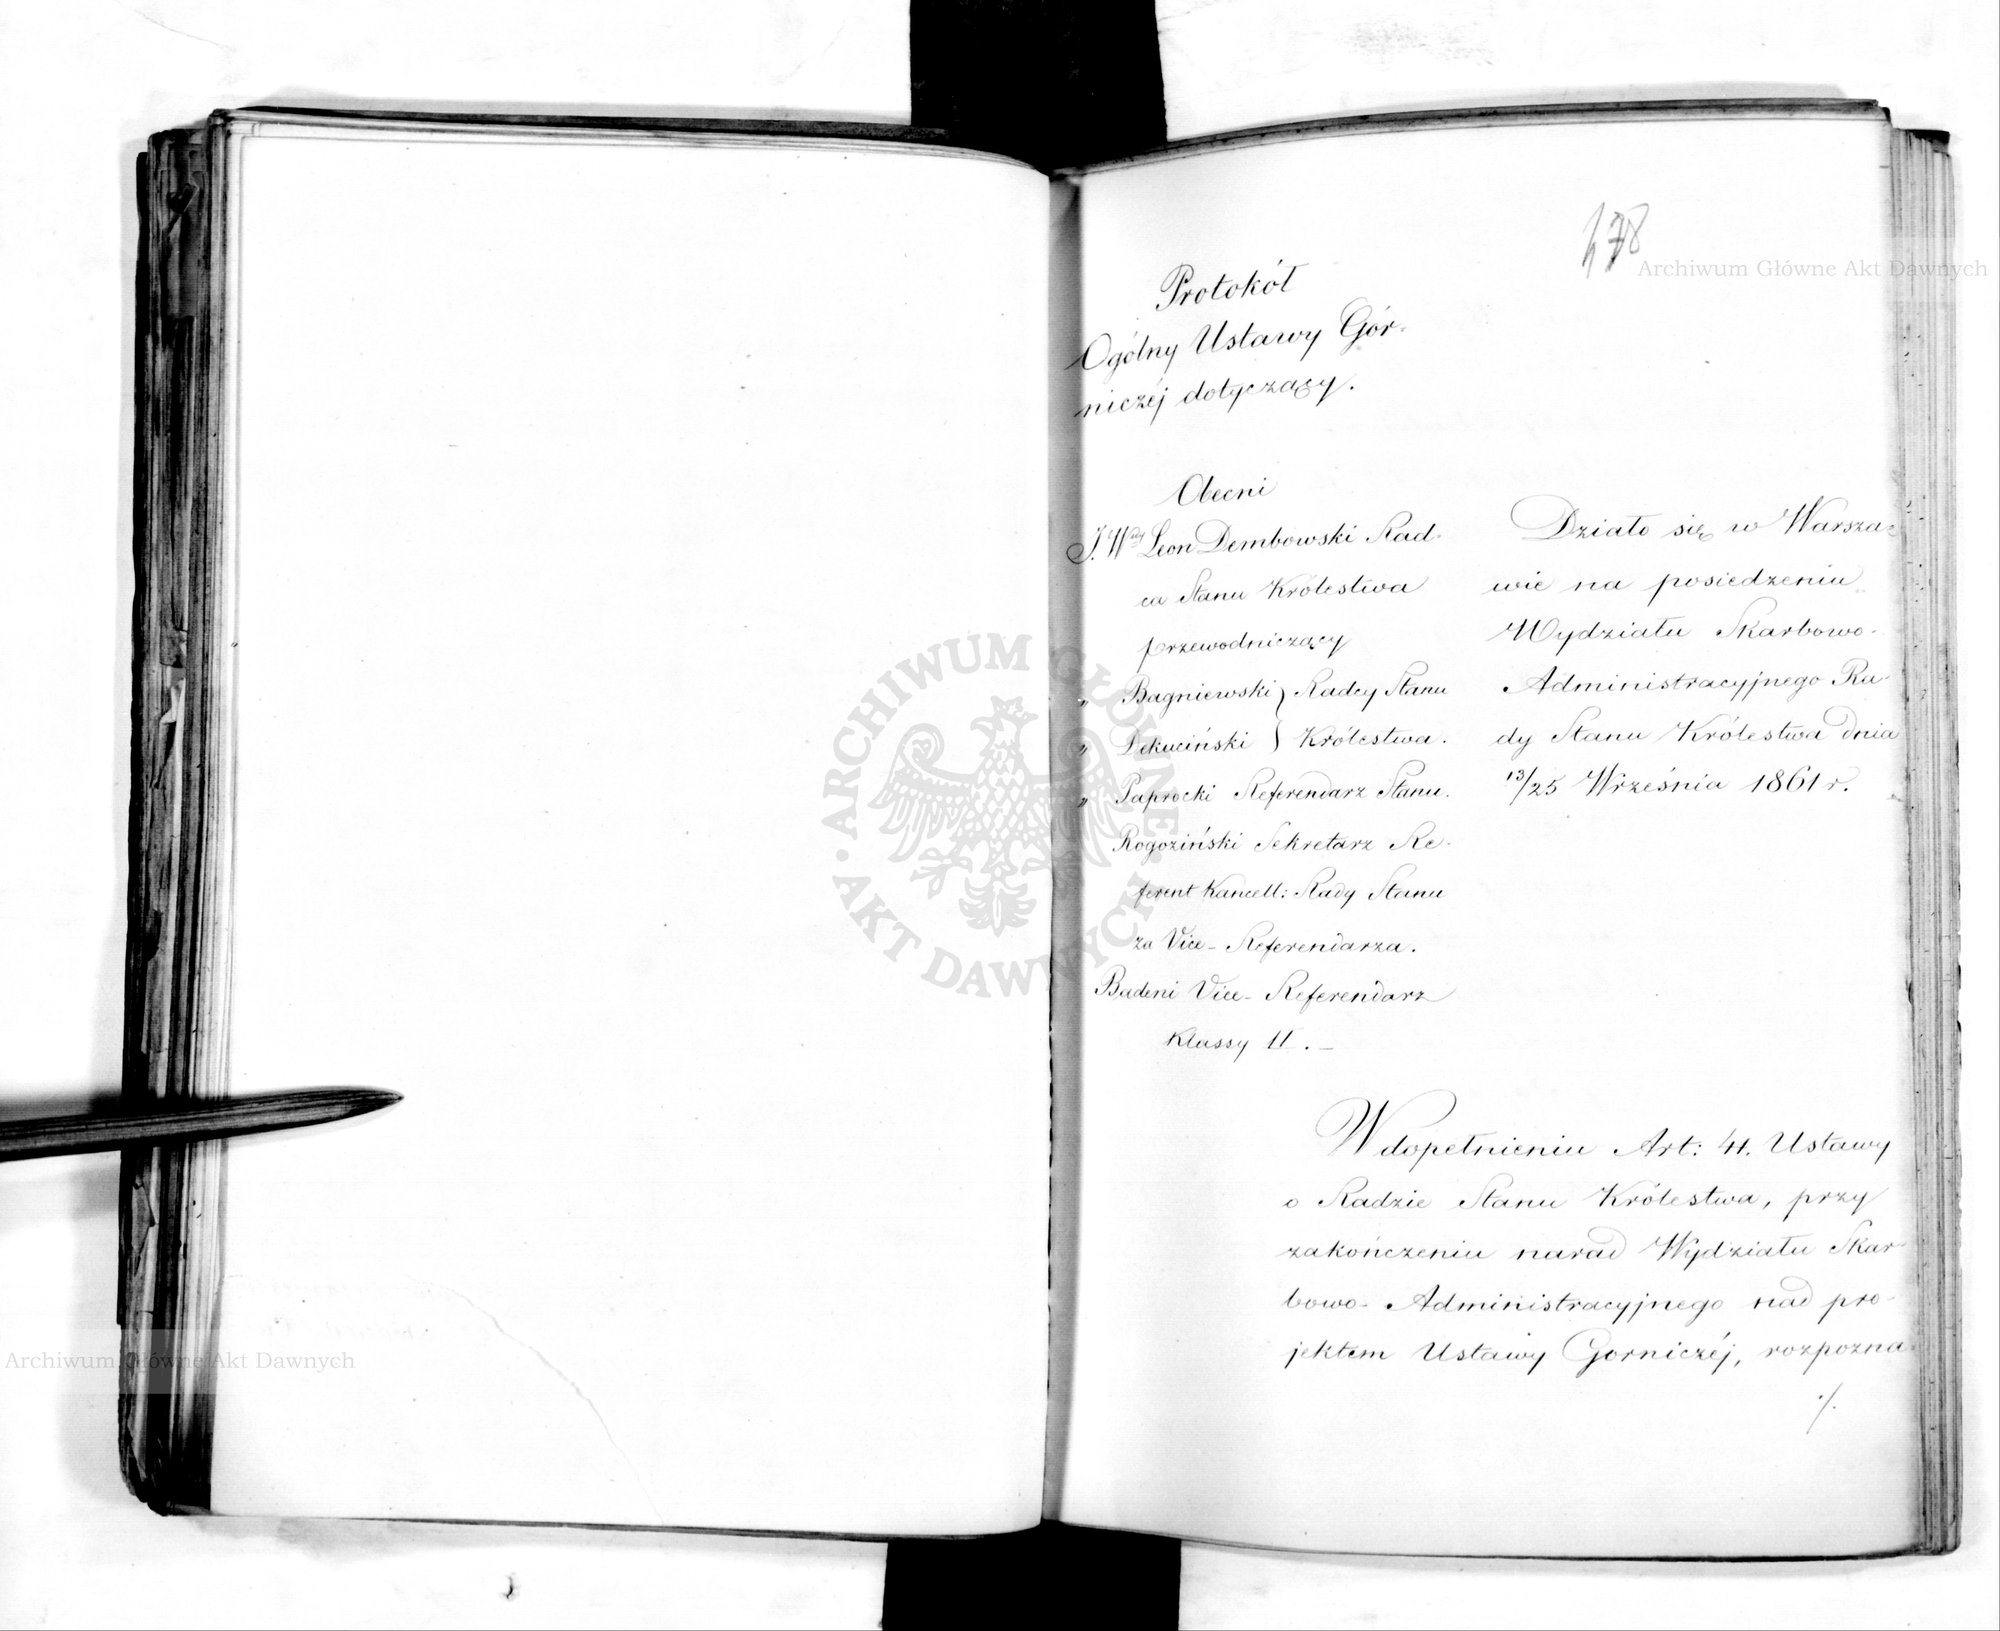 178
Protokół
Ogólny Ustawy Gór-
niczéj dotyczący.
Obecni
J. W. Leon Dembowski Rad-
ca Stanu Królestwa
przewodniczący
„ Bagniewski } Radcy Stanu
„ Dekuciński } Królestwa.
„ Paprocki Referendarz Stanu.
Rogoziński Sekretarz Re-
ferent Kancell: Rady Stanu
za Vice-Referendarza.
Badeni Vice-Referendarz
Klassy II. –
Działo się w Warsza-
wie na posiedzeniu
Wydziału Skarbowo-
Administracyjnego Ra-
dy Stanu Królestwa dnia
13/25 Września 1861 r.
W dopełnieniu Art: 41. Ustawy
o Radzie Stanu Królestwa, przy
zakończeniu narad Wydziału Skar-
bowo-Administracyjnego nad pro-
jektem Ustawy Gorniczéj, rozpozna-
./.
Archiwum Główne Akt Dawnych
Archiwum Główne Akt Dawnych
ARCHIWUM GŁÓWNE · AKT DAWNYCH ·